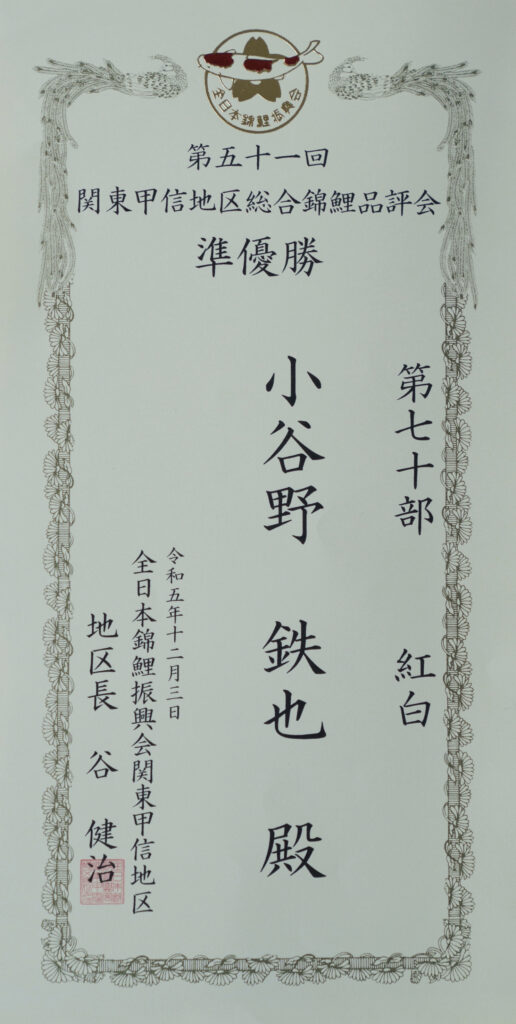 全日本錦鯉振興会
第五十一回
関東甲信地区総合錦鯉品評会
準優勝
第七十部 紅白
小谷野 鉄也 殿
令和五年十二月三日
全日本錦鯉振興会関東甲信地区
地区長 谷 健治